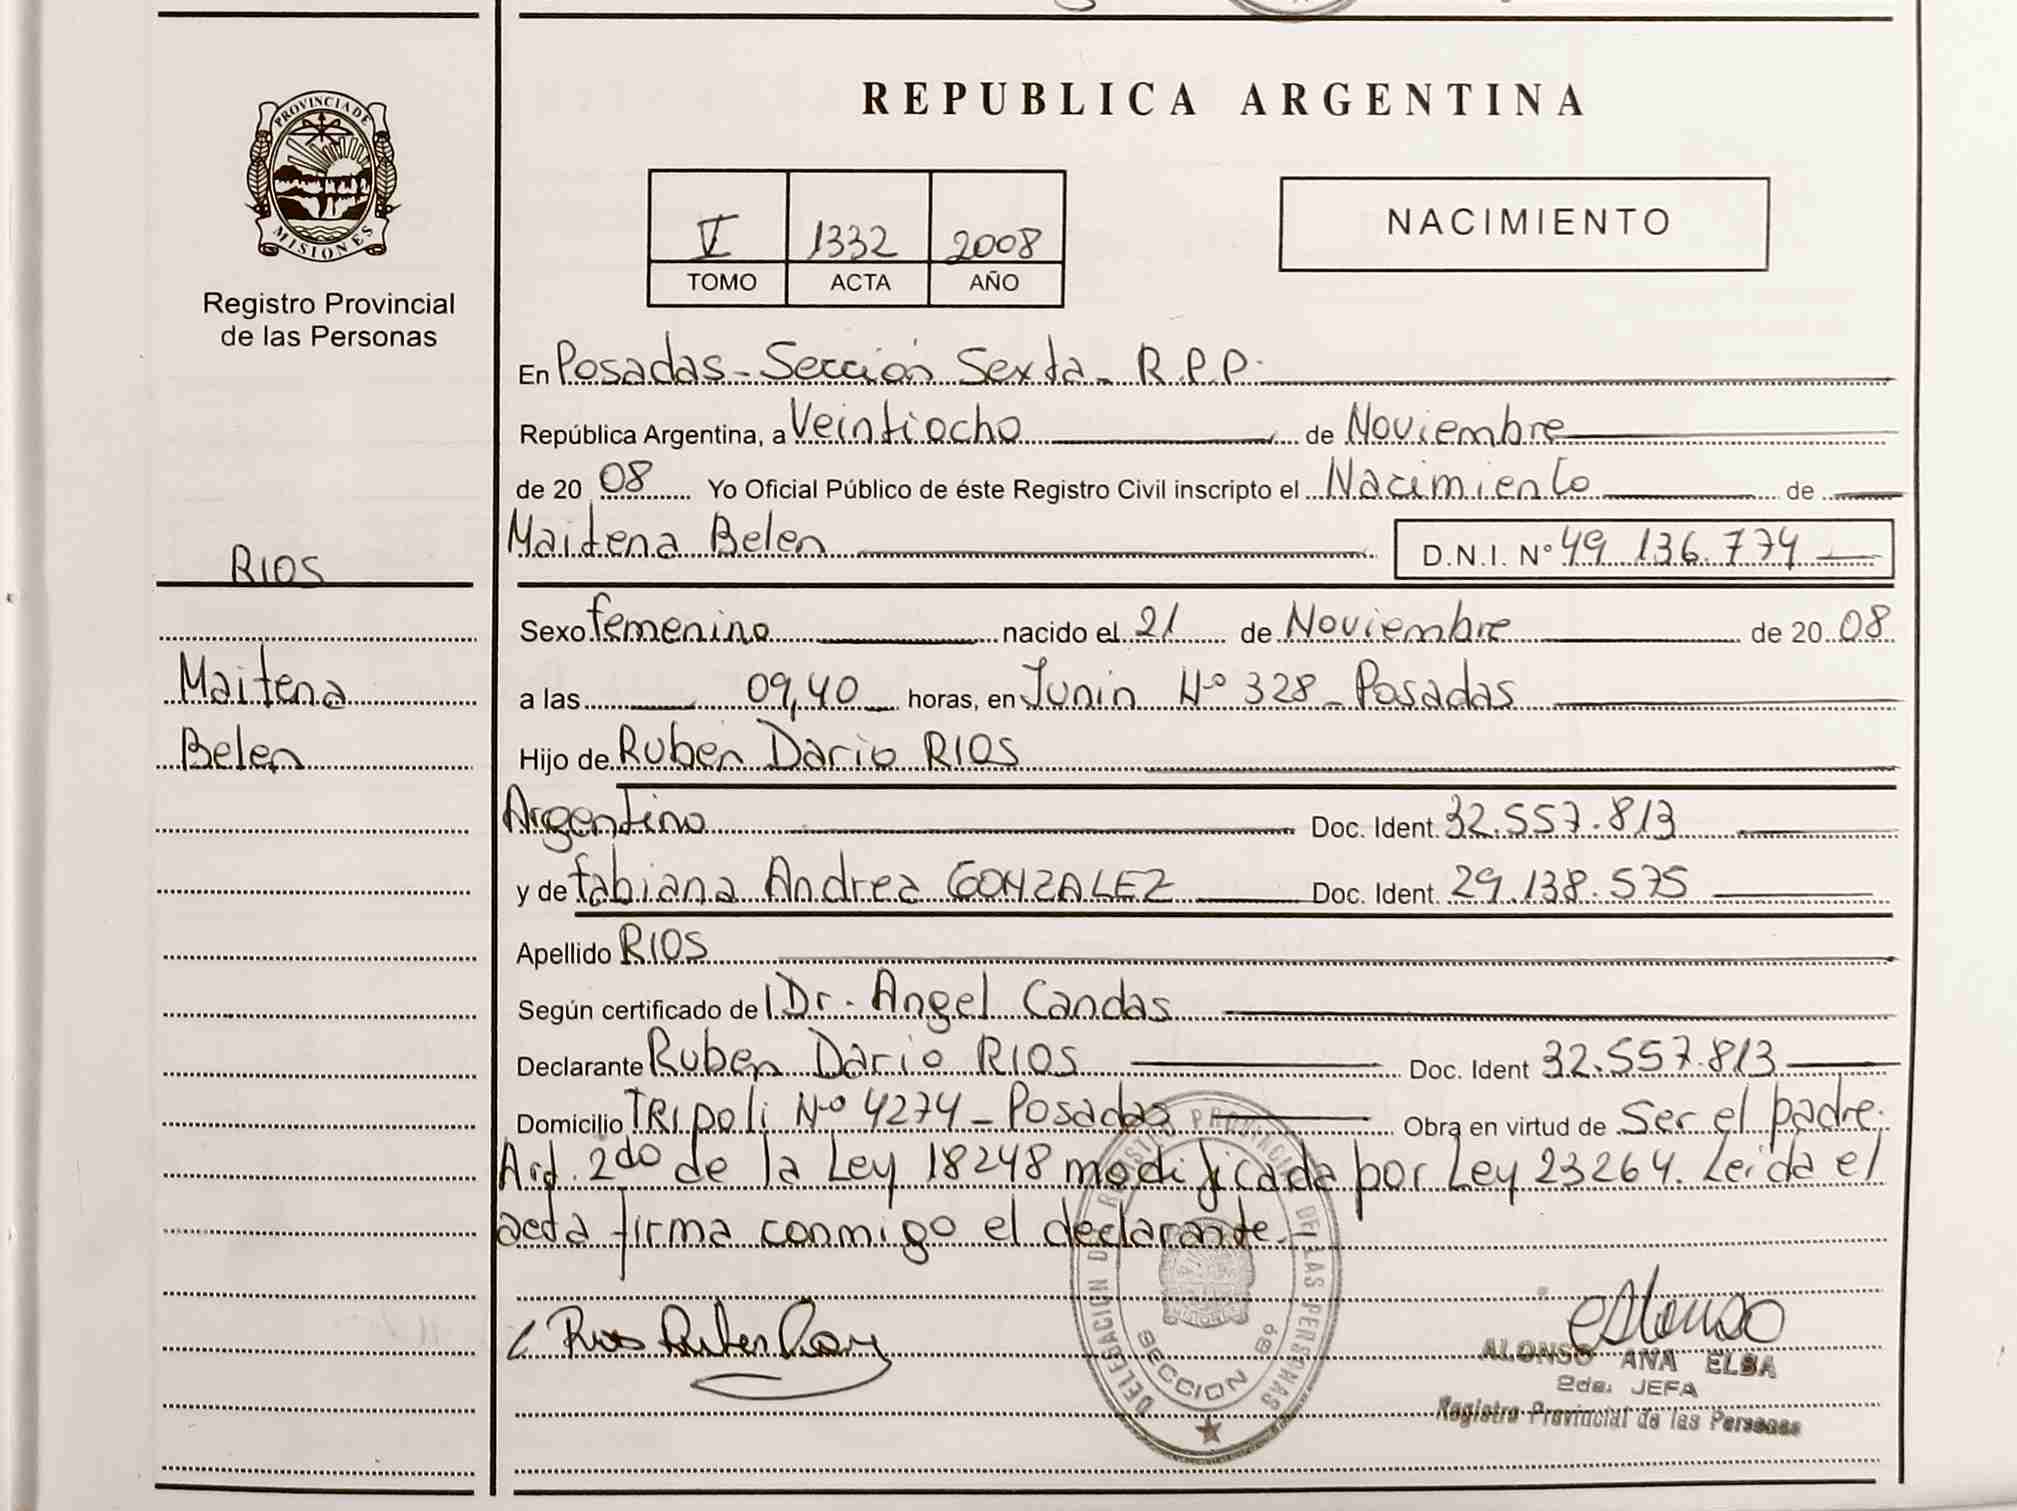 REPUBLICA ARGENTINA
PROVINCIA DE
MISIONES
Registro Provincial
de las Personas
V 1332 2008
TOMO ACTA AÑO
NACIMIENTO
En Posadas - Sección Sexta - R.P.P.
República Argentina, a Veintiocho de Noviembre
de 20 08 Yo Oficial Público de éste Registro Civil inscripto el Nacimiento de
Maitena Belen D.N.I. Nº 49.136.774
RIOS
Maitena
Belen
Sexo femenino nacido el 21 de Noviembre de 20 08
a las 09,40 horas, en Junin Nº 328 - Posadas
Hijo de Ruben Dario RIOS
Argentino Doc. Ident. 32.557.813
y de fabiana Andrea GONZALEZ Doc. Ident. 29.138.575
Apellido RIOS
Según certificado de l Dr. Angel Candas
Declarante Ruben Dario RIOS Doc. Ident 32.557.813
Domicilio TRIpoli Nº 4274 - Posadas Obra en virtud de Ser el padre.
Art. 2do de la Ley 18248 modificada por Ley 23264. Leida el
acta firma conmigo el declarante.-
DELEGACION DEL REGISTRO PROVINCIAL DE LAS PERSONAS
SECCION 6ª
Rios Ruben
ealonso
ALONSO ANA ELBA
2da. JEFA
Registro Provincial de las Personas